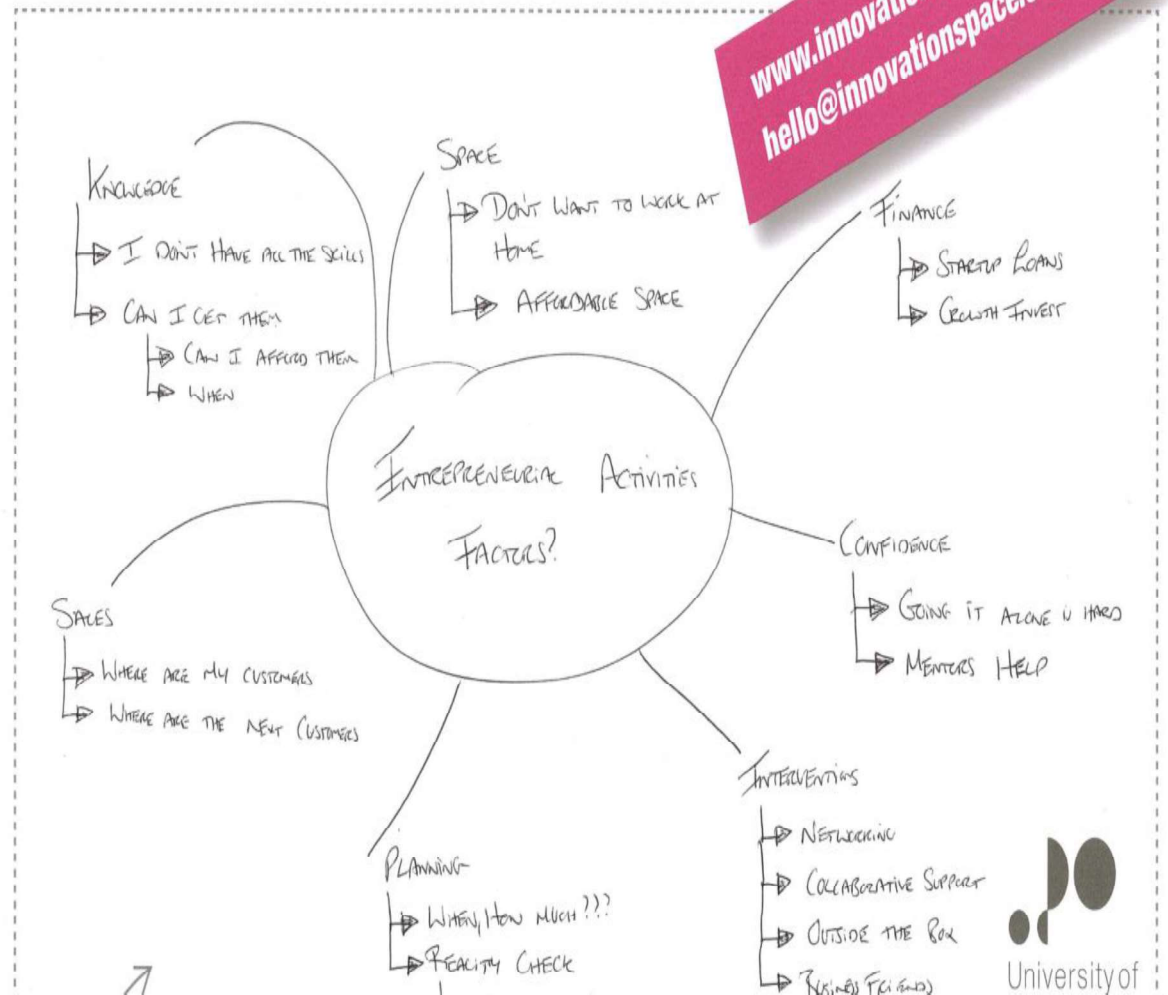 www.innovatio
hello@innovationspace.
KNOWLEDGE
I DON'T HAVE ALL THE SKILLS
CAN I GET THEM
CAN I AFFORD THEM
WHEN
SPACE
DON'T WANT TO WORK AT
HOME
AFFORDABLE SPACE
FINANCE
STARTUP LOANS
GROWTH INVEST
ENTREPRENEURIAL ACTIVITIES
FACTORS?
CONFIDENCE
GOING IT ALONE IS HARD
MENTORS HELP
SALES
WHERE ARE MY CUSTOMERS
WHERE ARE THE NEXT CUSTOMERS
PLANNING
WHEN, HOW MUCH???
REALITY CHECK
INTERVENTIONS
NETWORKING
COLLABORATIVE SUPPORT
OUTSIDE THE BOX
BUSINESS FRIENDS
University of